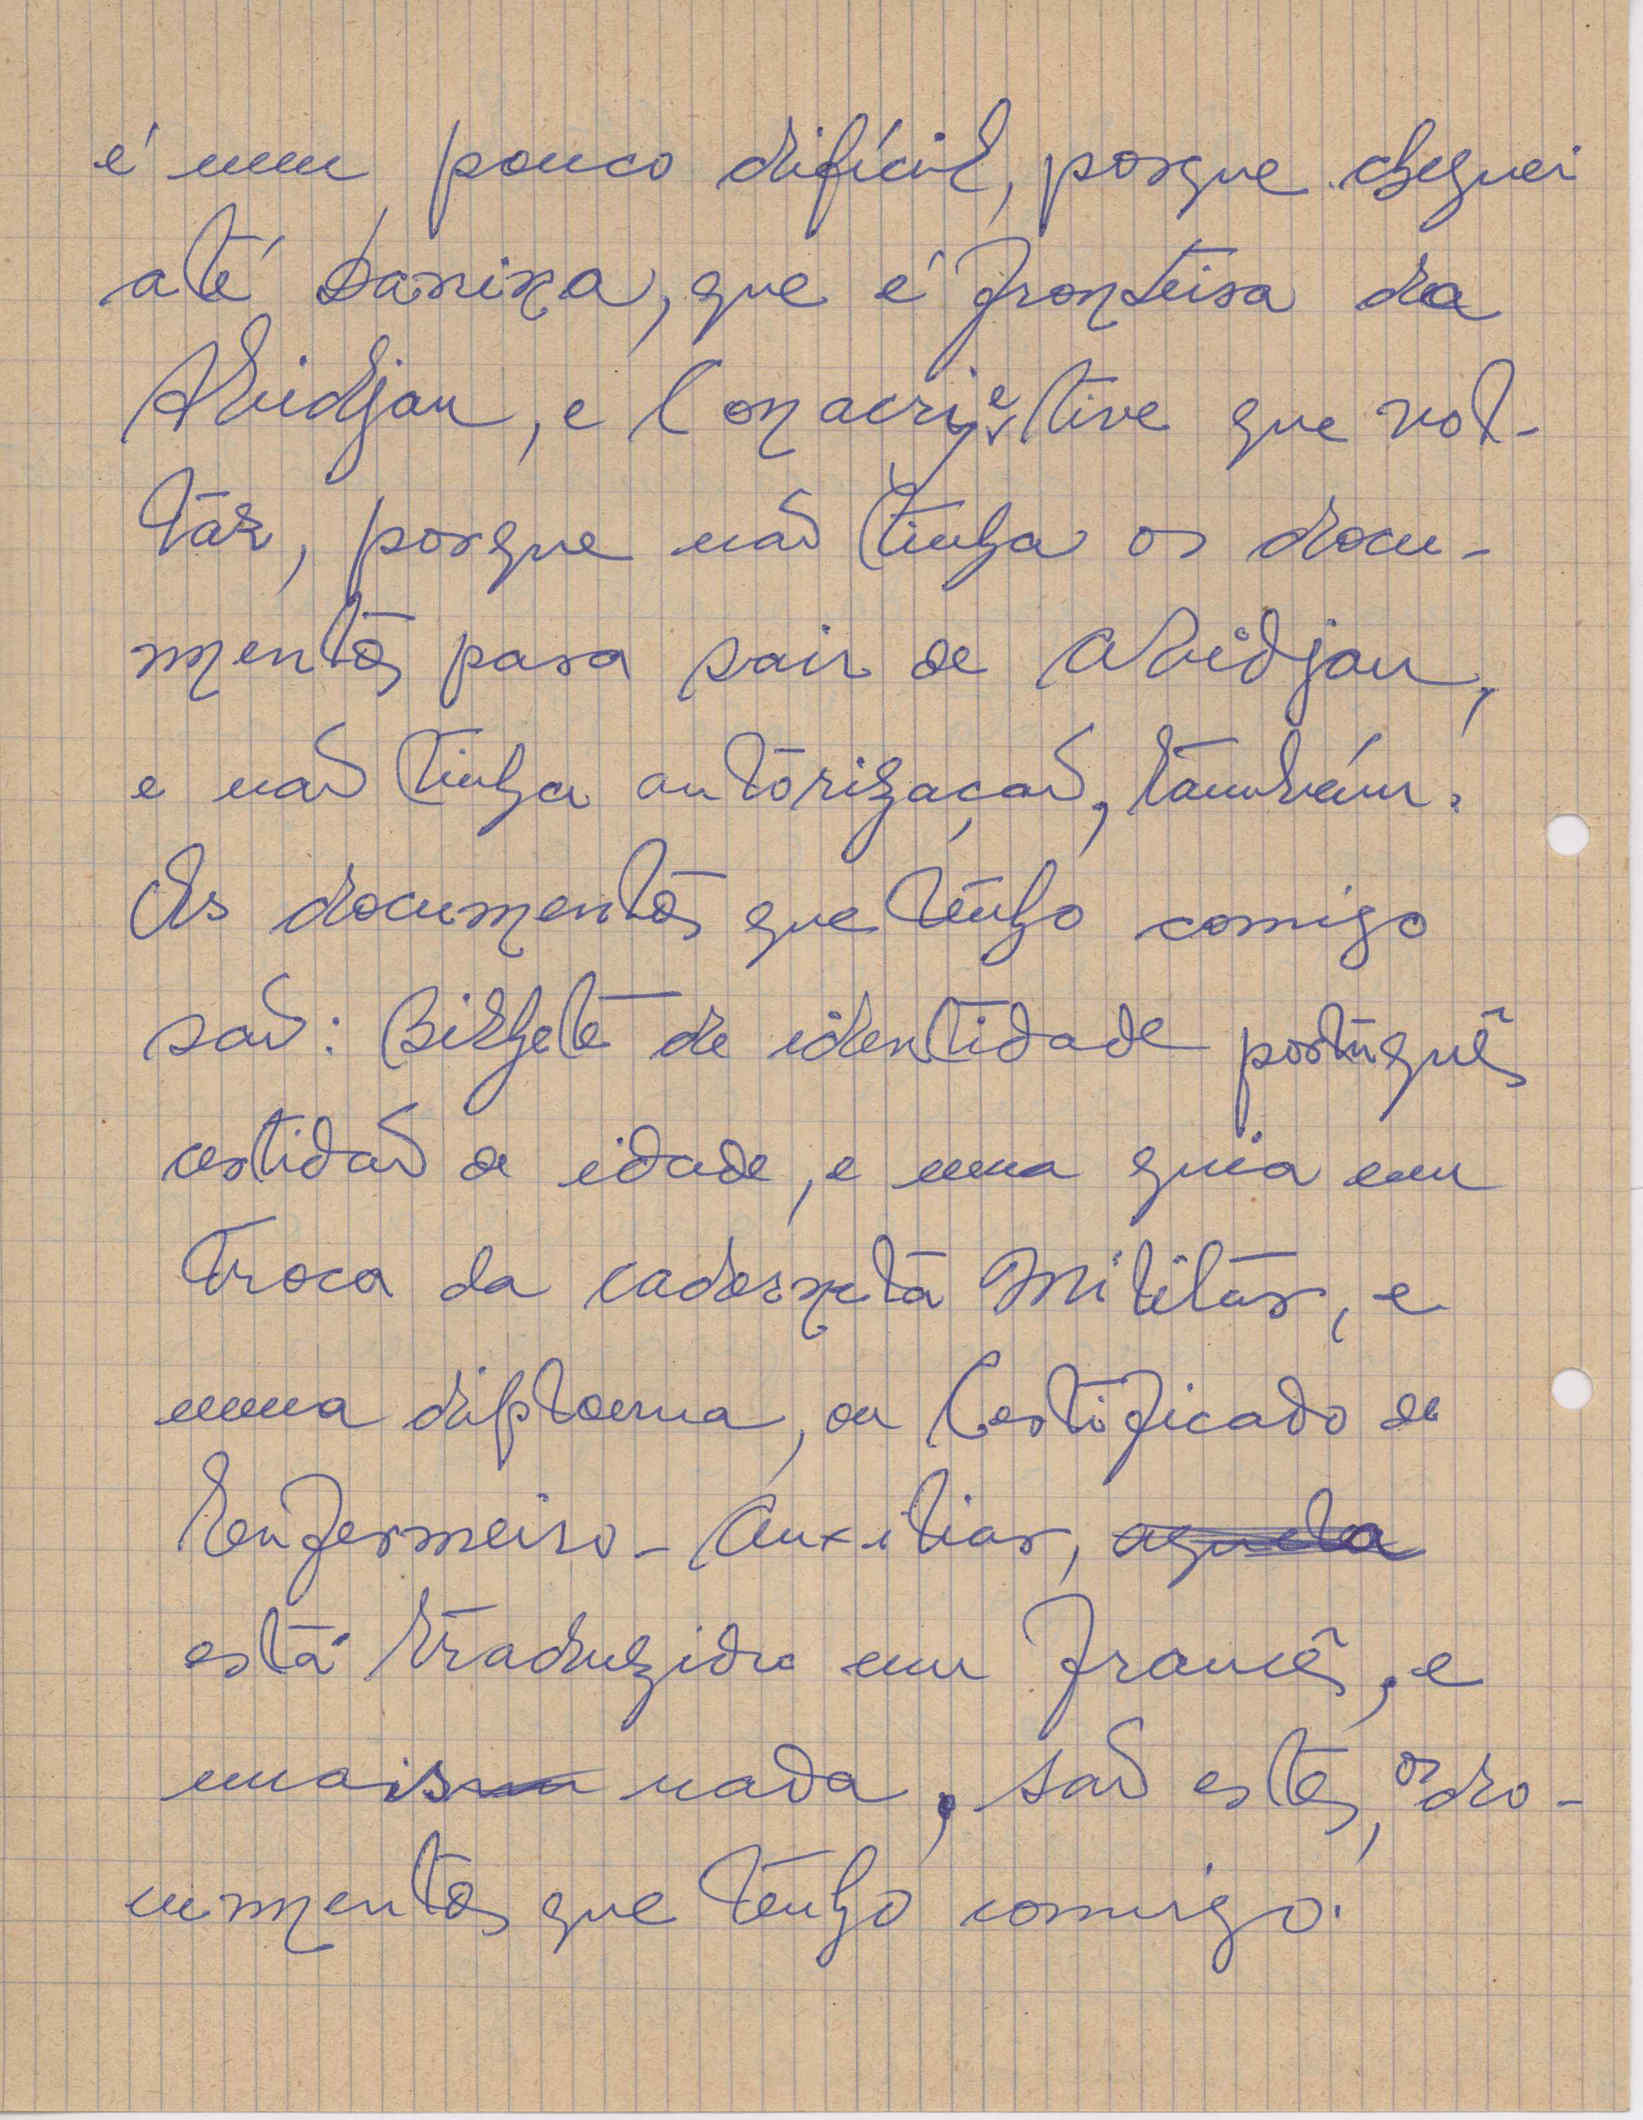 é um pouco difícil, porque cheguei
até Danixa, que é fronteira da
Abidjan, e Conacri, e tive que vol-
tár, porque não tinha os docu-
mentos para sair de Abidjan,
e não tinha autorização, também.
Os documentos que tenho comigo
são: Bilhete de identidade português
certidão de idade, e uma guia em
troca da caderneta Militar, e
uma diploma, ou Certificado de
Enfermeiro - Auxiliar, aquela
está traduzido em francês, e
mais nada, são estes, os do-
cumentos que tenho comigo.